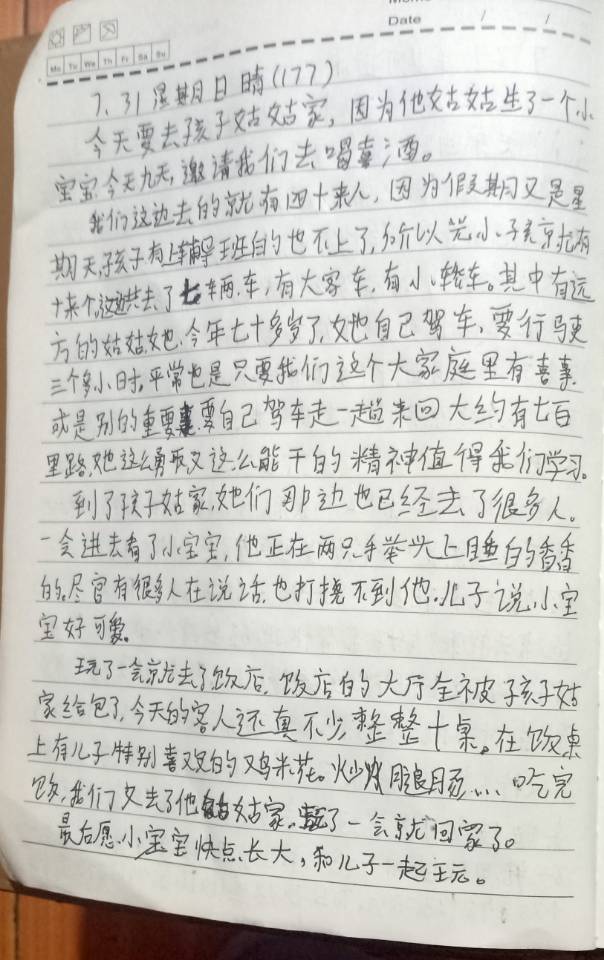 Date / /
Mo Tu We Th Fr Sa Su
7.31 星期日 晴(177)
今天要去孩子姑姑家,因为他姑姑生了一个小
宝宝,今天九天,邀请我们去喝喜酒。
我们这边去的就有四十来人,因为假期又是星
期天,孩子有上辅导班的也不上了,所以光小孩就有
十来个,这边共去了七辆车,有大客车,有小轿车。其中有远
方的姑姑,她今年七十多岁了,她自己驾车,要行驶
三个多小时,平常也是只要我们这个大家庭里有喜事
或是别的重要事要自己驾车走一趟来回大约有七百
里路,她这么勇敢又这么能干的精神值得我们学习。
到了孩子姑家,她们那边也已经去了很多人。
一会进去看了小宝宝,他正在两只手举头上睡的香香
的。尽管有很多人在说话,也打搅不到他,儿子说,小宝
宝好可爱。
玩了一会就去了饭店,饭店的大厅全被孩子姑
家给包了,今天的客人还真不少,整整十桌。在饭桌
上有儿子特别喜欢的鸡米花。炒火腿肠…吃完
饭,我们又去了他姑姑家,玩了一会就回家了。
最后愿小宝宝快点长大,和儿子一起玩。